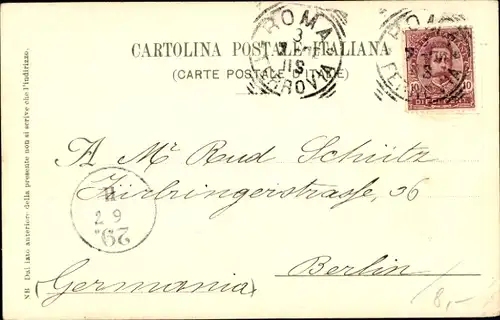 ROMA
FERROVIA
CARTOLINA POSTALE ITALIANA
(CARTE POSTALE D'ITALIE)
ROMA
FERROVIA
10 10
A Mr Rud Schütz
Fürbringerstrasse, 36
Berlin
(Germania)
8,-
29.
NB Dal lato anteriore della presente non si scrive che l'indirizzo.